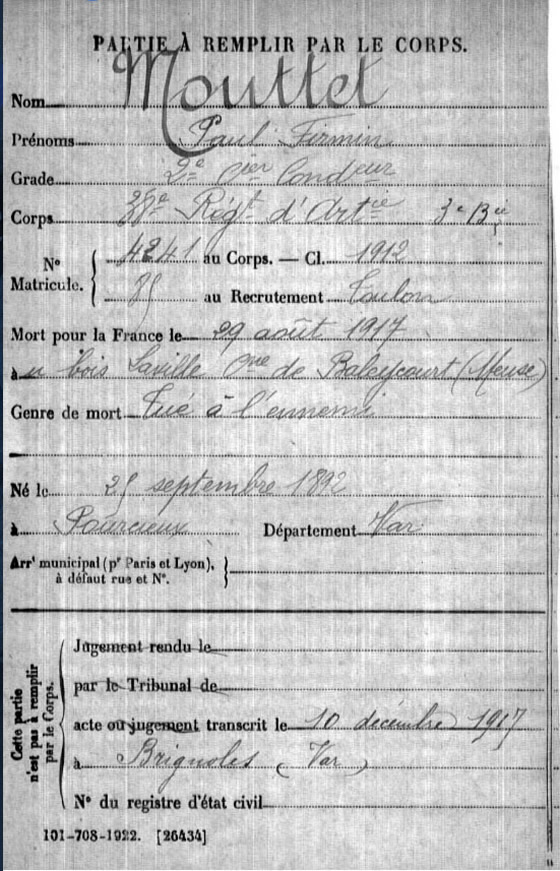 PARTIE À REMPLIR PAR LE CORPS.
Nom Mouttet
Prénoms Paul Firmin
Grade 2e Cier Condeur
Corps Régt d'Artie 3e Bie
No Matricule. 4241 au Corps. — Cl. 1912
85 au Recrutement Toulon
Mort pour la France le 29 août 1917
à u bois Saville Cne de Baleycourt (Meuse)
Genre de mort Tué à l'ennemi
Né le 25 septembre 1892
à Pourcieux Département Var
Arrt municipal (pr Paris et Lyon),
à défaut rue et No.
Cette partie n'est pas à remplir par le Corps.
Jugement rendu le
par le Tribunal de
acte ou jugement transcrit le 10 décembre 1917
à Brignoles (Var)
No du registre d'état civil
101-708-1922. [26434]